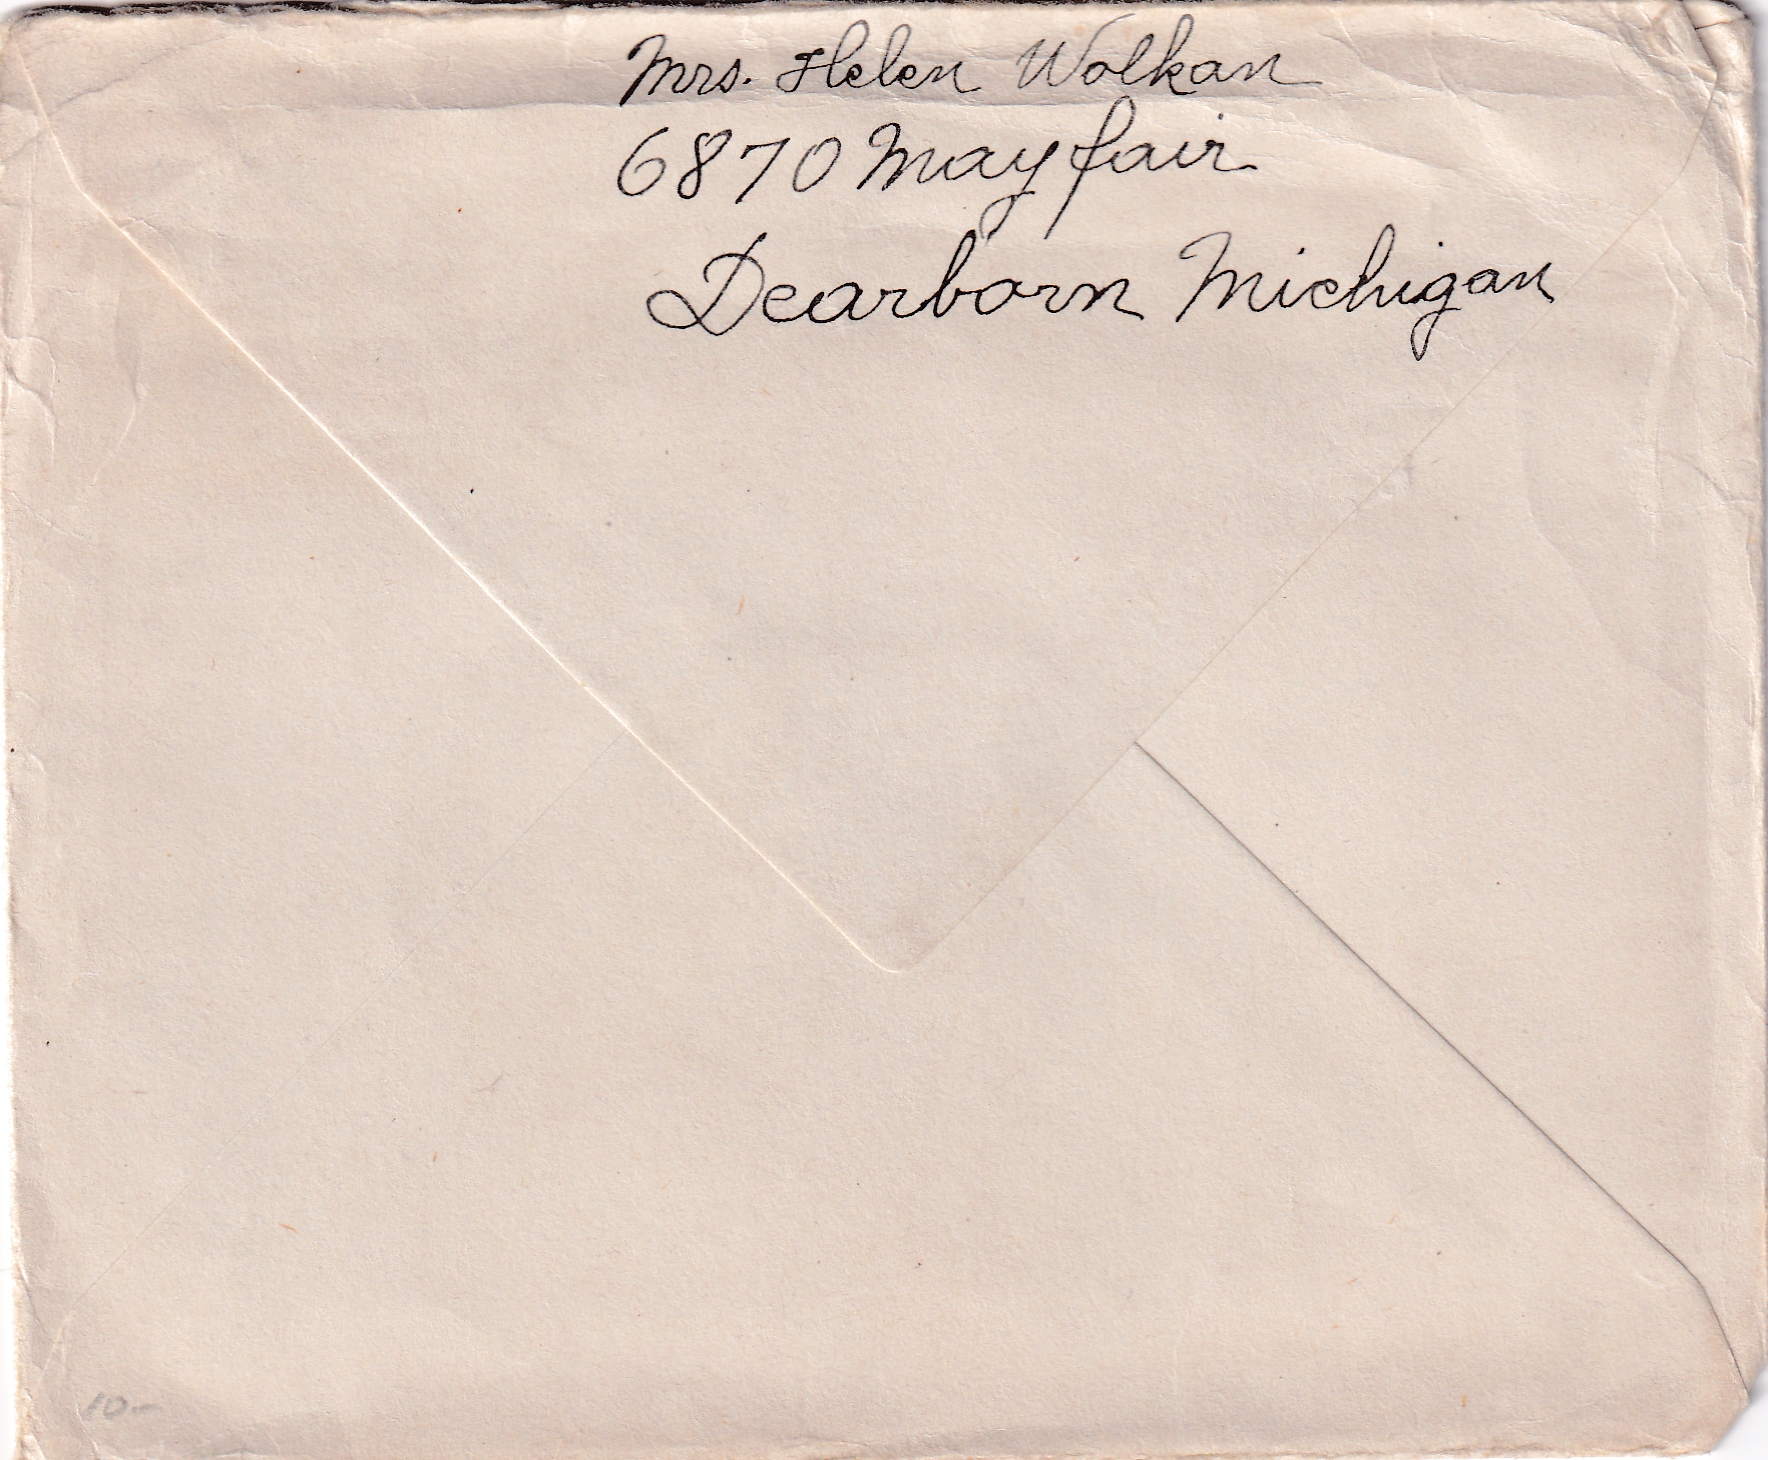 Mrs. Helen Wolkan
6870 Mayfair
Dearborn Michigan
10-